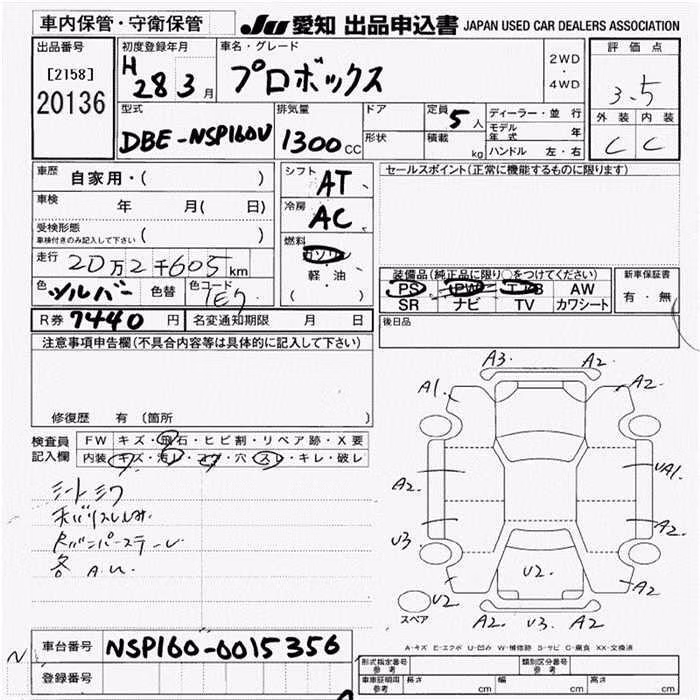 車内保管・守衛保管 JU 愛知 出品申込書 JAPAN USED CAR DEALERS ASSOCIATION
出品番号 初度登録年月 車名・グレード 2WD ・ 4WD 評価点
[2158] H 28 3月 プロボックス 3.5
20136
型式 排気量 ドア 定員 5人 ディーラー・並行 外装 内装
DBE-NSP160V 1300CC 形状 積載 kg モデル年式 年 C C
ハンドル 左・右
車歴 自家用・( ) シフト AT セールスポイント(正常に機能するものに限ります)
車検 年 月( 日) 冷房 AC
受検形態 ( )
車検付きのみ記入して下さい
燃料 ガソリン
走行 20万2千605km 軽油
( )
装備品(純正品に限り○をつけてください) 新車保証書
色 シルバー 色替 色コード 1E7
PS PW AW 有・無
SR ナビ TV カワシート
R券 7440円 名変通知期限 月 日 後日品
注意事項申告欄(不具合内容等は具体的に記入して下さい)
修復歴 有 (箇所
検査員記入欄 FW キズ・飛石・ヒビ割・リペア跡・X要
内装 キズ・汚レ・コゲ・穴・スレ・キレ・破レ
シートシワ
各 A.U.
A3. A2.
A1. A2.
A2. UA1.
U3 A2.
U2.
U2 A2
A2. U3. A2
スペア
A-キズ E-エクボ U-凹み W-補修跡 S-サビ C-腐食 XX-交換済
N
車台番号 NSP160-0015356
登録番号
形式指定番号 参考 類別区分番号 参考
車庫証明用 参考 長さ cm 幅 cm 高さ cm